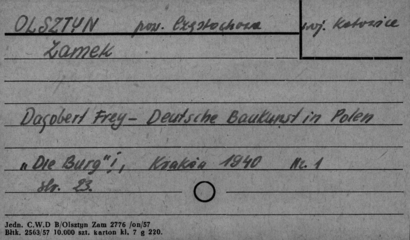 OLSZTYN pow. Częstochowa woj. Katowice
Zamek
Dagobert Frey – Deutsche Baukunst in Polen
„Die Burg”, Kraków 1940 Nr. 1
str. 23
Jedn. C.W.D B/Olsztyn Zam 2776 /on/57
Bltk. 2563/57 10.000 szt. karton kl. 7 g 220.